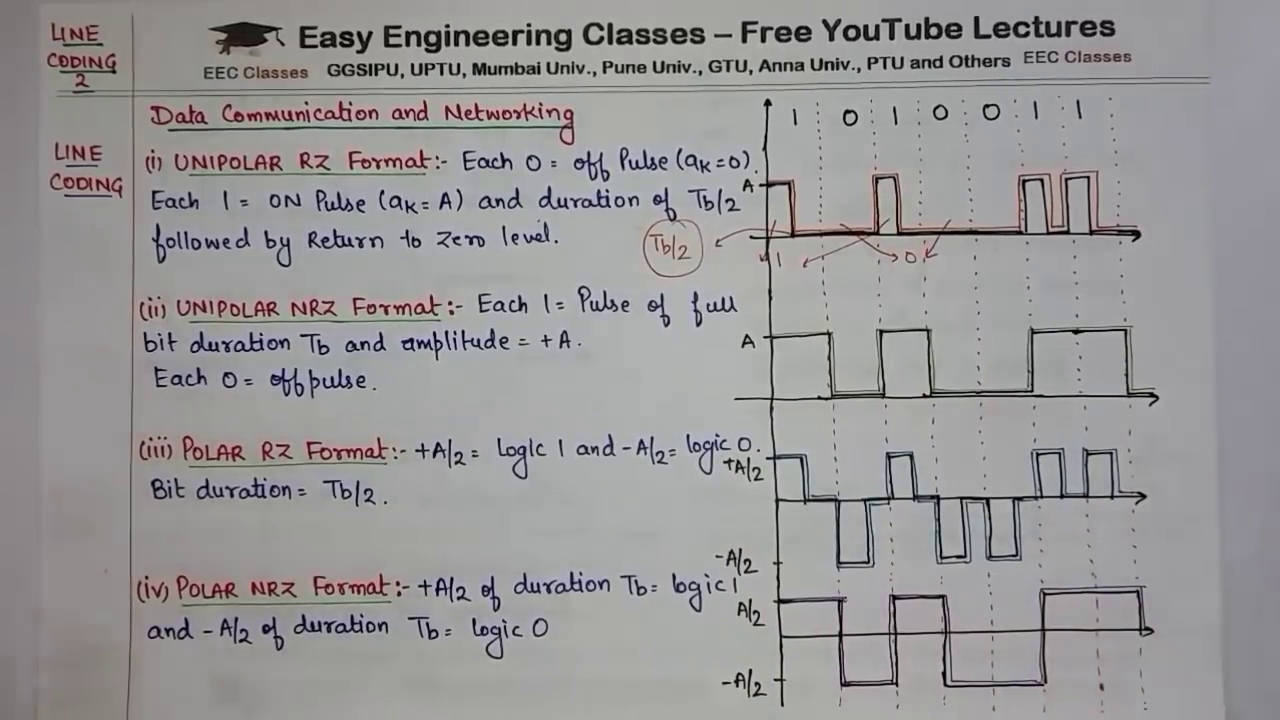 LINE
CODING
2
Easy Engineering Classes – Free YouTube Lectures
EEC Classes GGSIPU, UPTU, Mumbai Univ., Pune Univ., GTU, Anna Univ., PTU and Others EEC Classes
Data Communication and Networking
1 0 1 0 0 1 1
LINE
CODING
(i) UNIPOLAR RZ Format:- Each 0 = off Pulse (aK=0).
Each 1 = ON Pulse (aK= A) and duration of Tb/2
followed by Return to Zero level.
A
Tb/2
1
0
(ii) UNIPOLAR NRZ Format:- Each 1 = Pulse of full
bit duration Tb and amplitude = +A.
Each 0 = off pulse.
A
(iii) POLAR RZ Format:- +A/2 = Logic 1 and -A/2 = logic 0.
Bit duration = Tb/2.
+A/2
-A/2
(iv) POLAR NRZ Format:- +A/2 of duration Tb = logic 1
and -A/2 of duration Tb = logic 0
A/2
-A/2